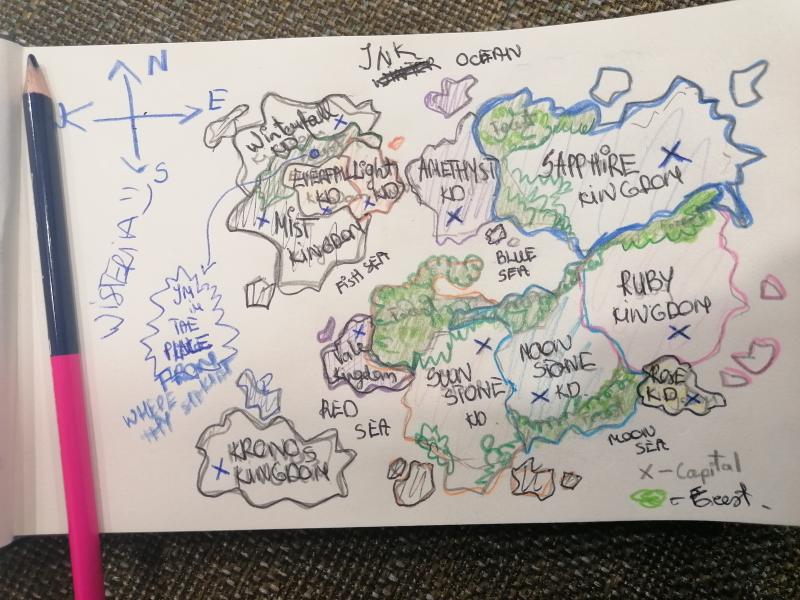 JNK
OCEAN
N
E
S
K
WISTERIA :)
Winterfall
KD
EVERFALL
KD
Light
KD
MIST
KINGDOM
FISH SEA
AMETHYST
KD
SAPPHIRE
KINGDOM
BLUE
SEA
RUBY
KINGDOM
YM
in
THE
PLACE
FROM
WHERE
Vale
Kingdom
RED
SEA
SUUN
STONE
KD
MOON
STONE
KD
ROSE
KD
MOON
SEA
KRONOS
KINGDOM
X - Capital